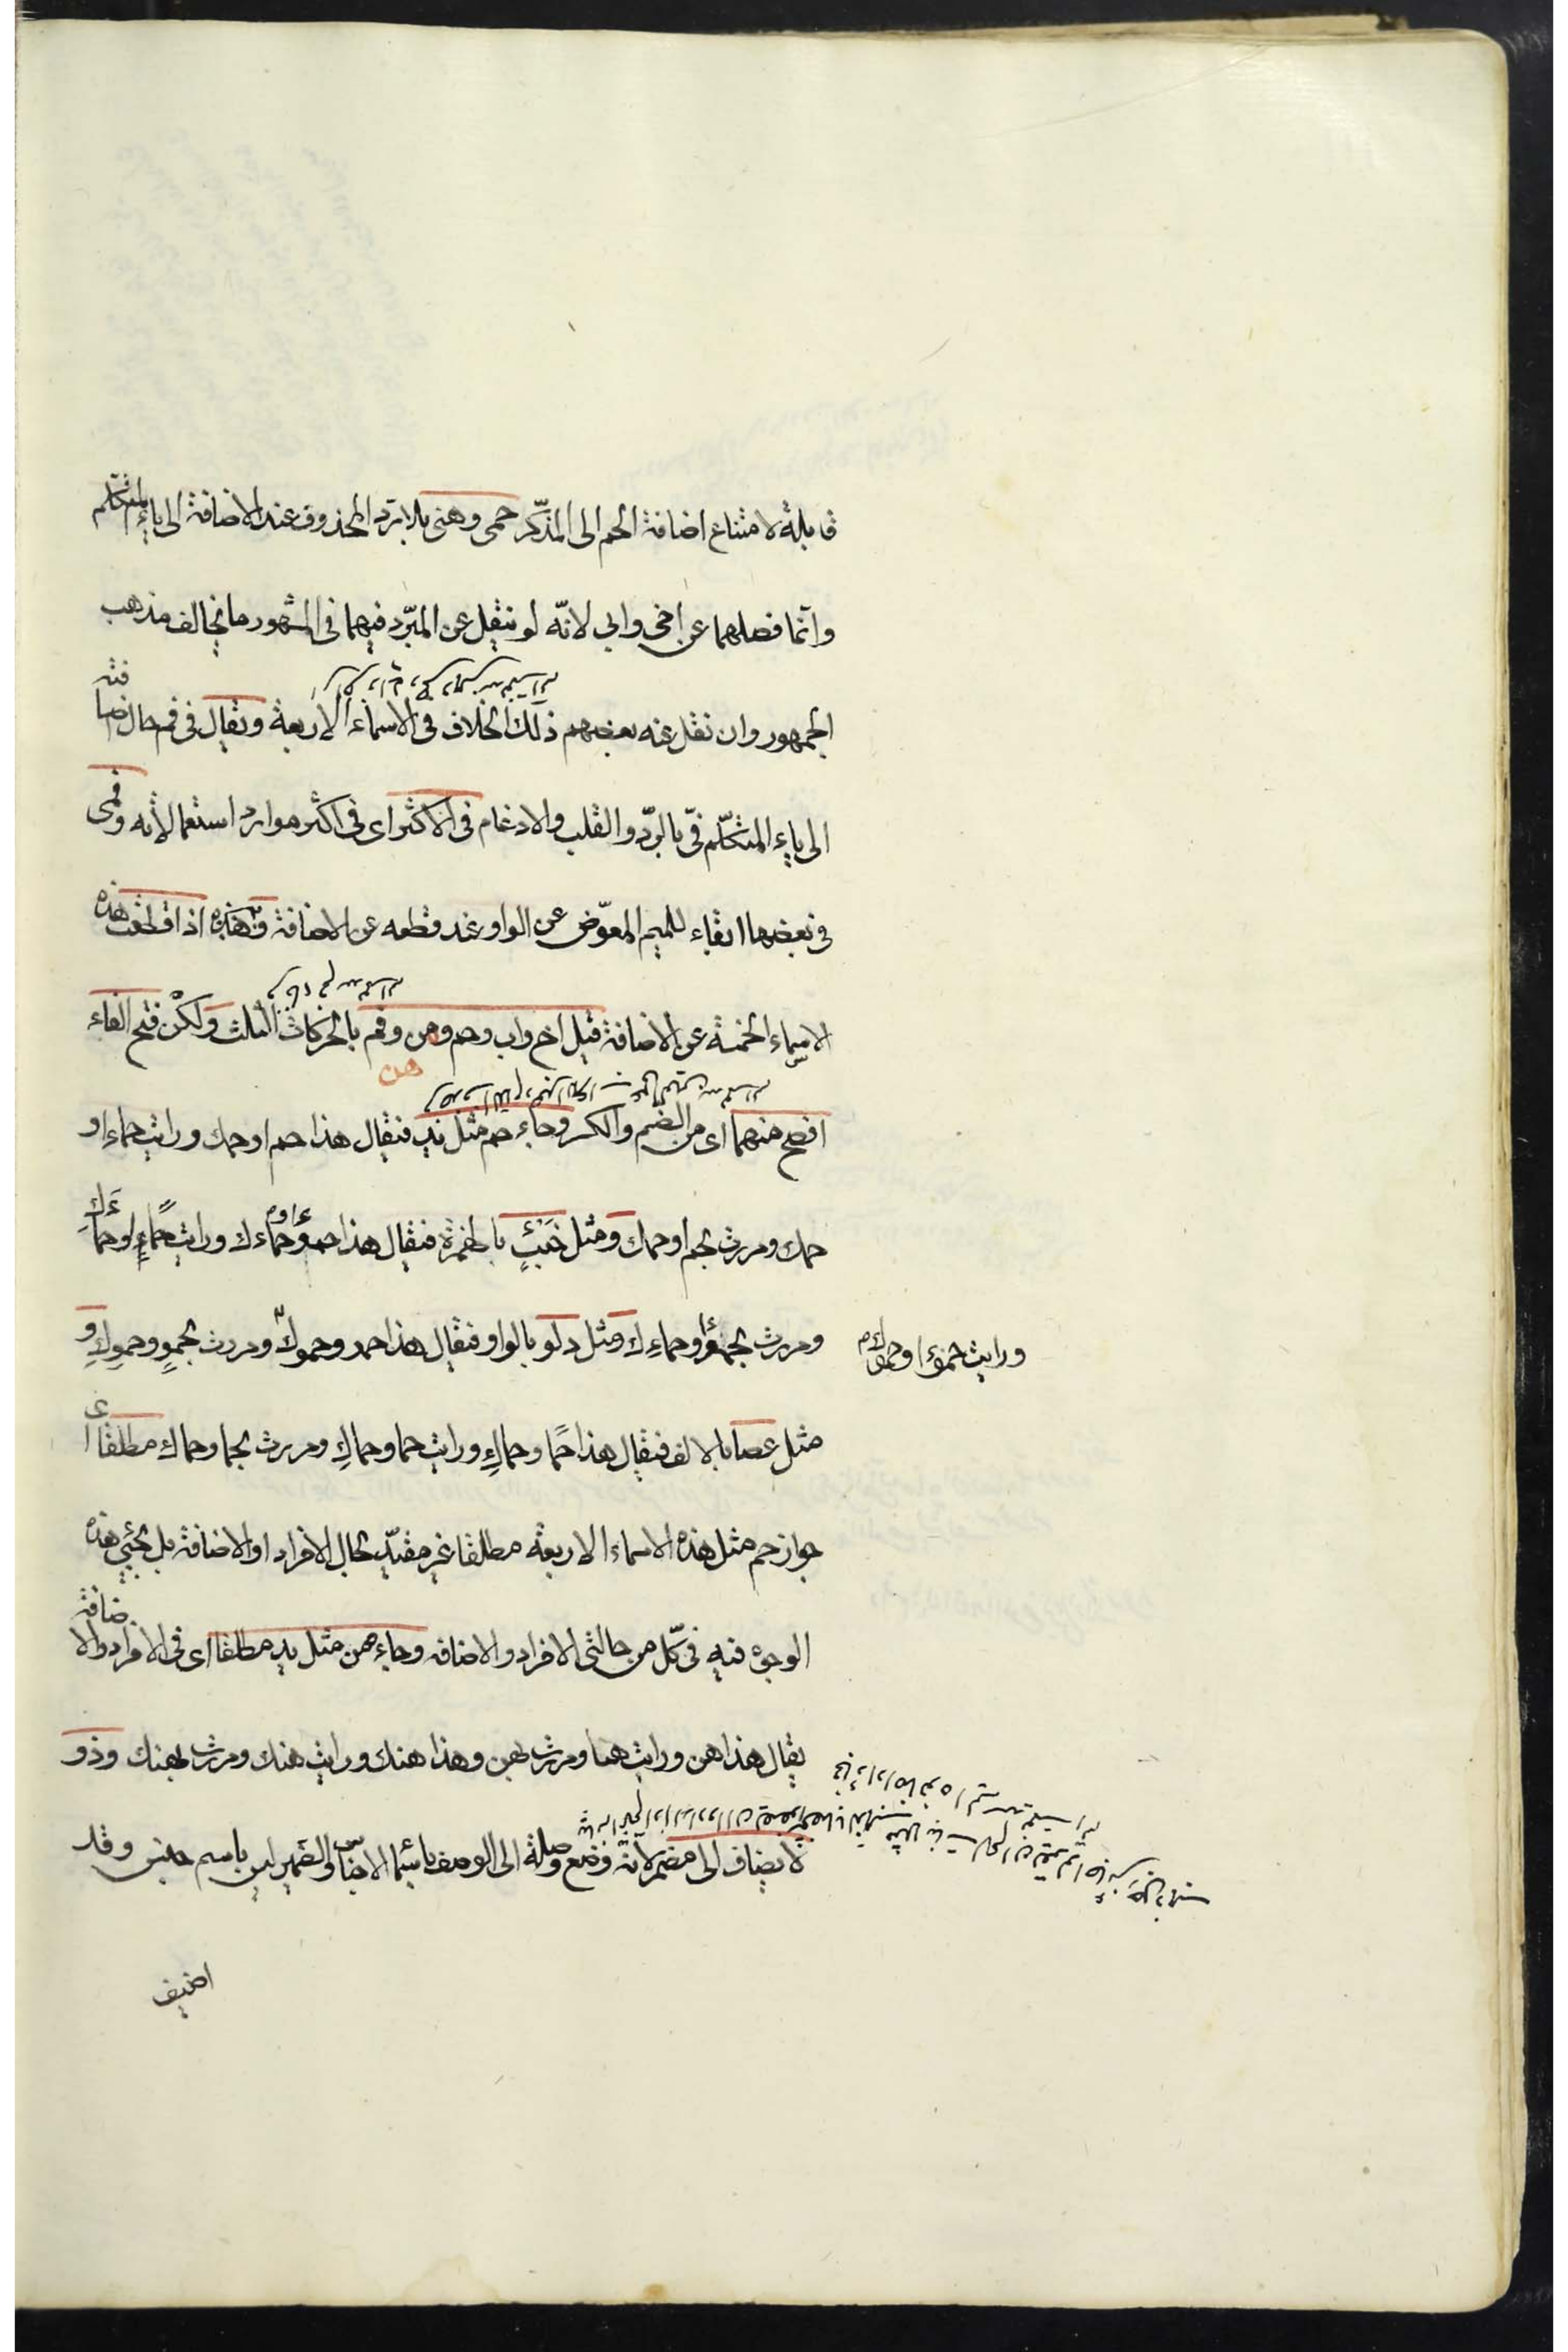 قابلة لامتناع اضافة الحم الى المذكّر حمى وهنى بلا ردّ المحذوف عند الاضافة الى ياء المتكلم
وانّما فصلهما عن اخى وابى لانّه لم ينقل عن المبرّد فيهما فى المشهور ما يخالف مذهب
الجمهور وان نقل عنه بعضهم ذلك الخلاف فى الاسماء الاربعة ويقال فى فم حال اضافته
الى ياء المتكلّم فىّ بالردّ والقلب والادغام فى الاكثر اى فى اكثر موارد استعمالاته وفمى
فى بعضها ابقاء للميم المعوّض عن الواو عند قطعه عن الاضافة واذا قطعت هذه
الاسماء الخمسة عن الاضافة قيل اخ واب وحم وهن وفم بالحركات الثلث ولكن فتح الفاء
هن
افصح منهما اى من الضم والكسر وجاء حم مثل يد فيقال هذا حم او حمك ورايت حماء او
حمك ومررت بحم او حمك ومثل خبءٍ بالهمزة فيقال هذا حمؤ وحماءك ورايت حماءً او حماءك
ومررت بحمؤ او حماءِك ومثل دلو بالواو فيقال هذا حمو وحموك ومررت بحموٍ وحموِك و
ورايت حمؤا وحموك
مثل عصا بالالف فيقال هذا حمًا وحماكِ ورايت حما وحماكِ ومررت بحما وحماك مطلقا اى
جواز حم مثل هذه الاسماء الاربعة مطلقا غير مقيّد بحال الافراد او الاضافة بل تجيئ هذه
الوجوه فيه فى كلّ من حالتى الافراد والاضافه وجاء هن مثل يد مطلقا اى فى الافراد والاضافة
يقال هذا هن ورايت هنا ومررت بهن وهذا هنك ورايت هنك ومررت بهنك وذو
لا يضاف الى مضمر لانّه وضع وصلة الى الوصف باسماء الاجناس والضمير ليس باسم جنس وقد
اضيف